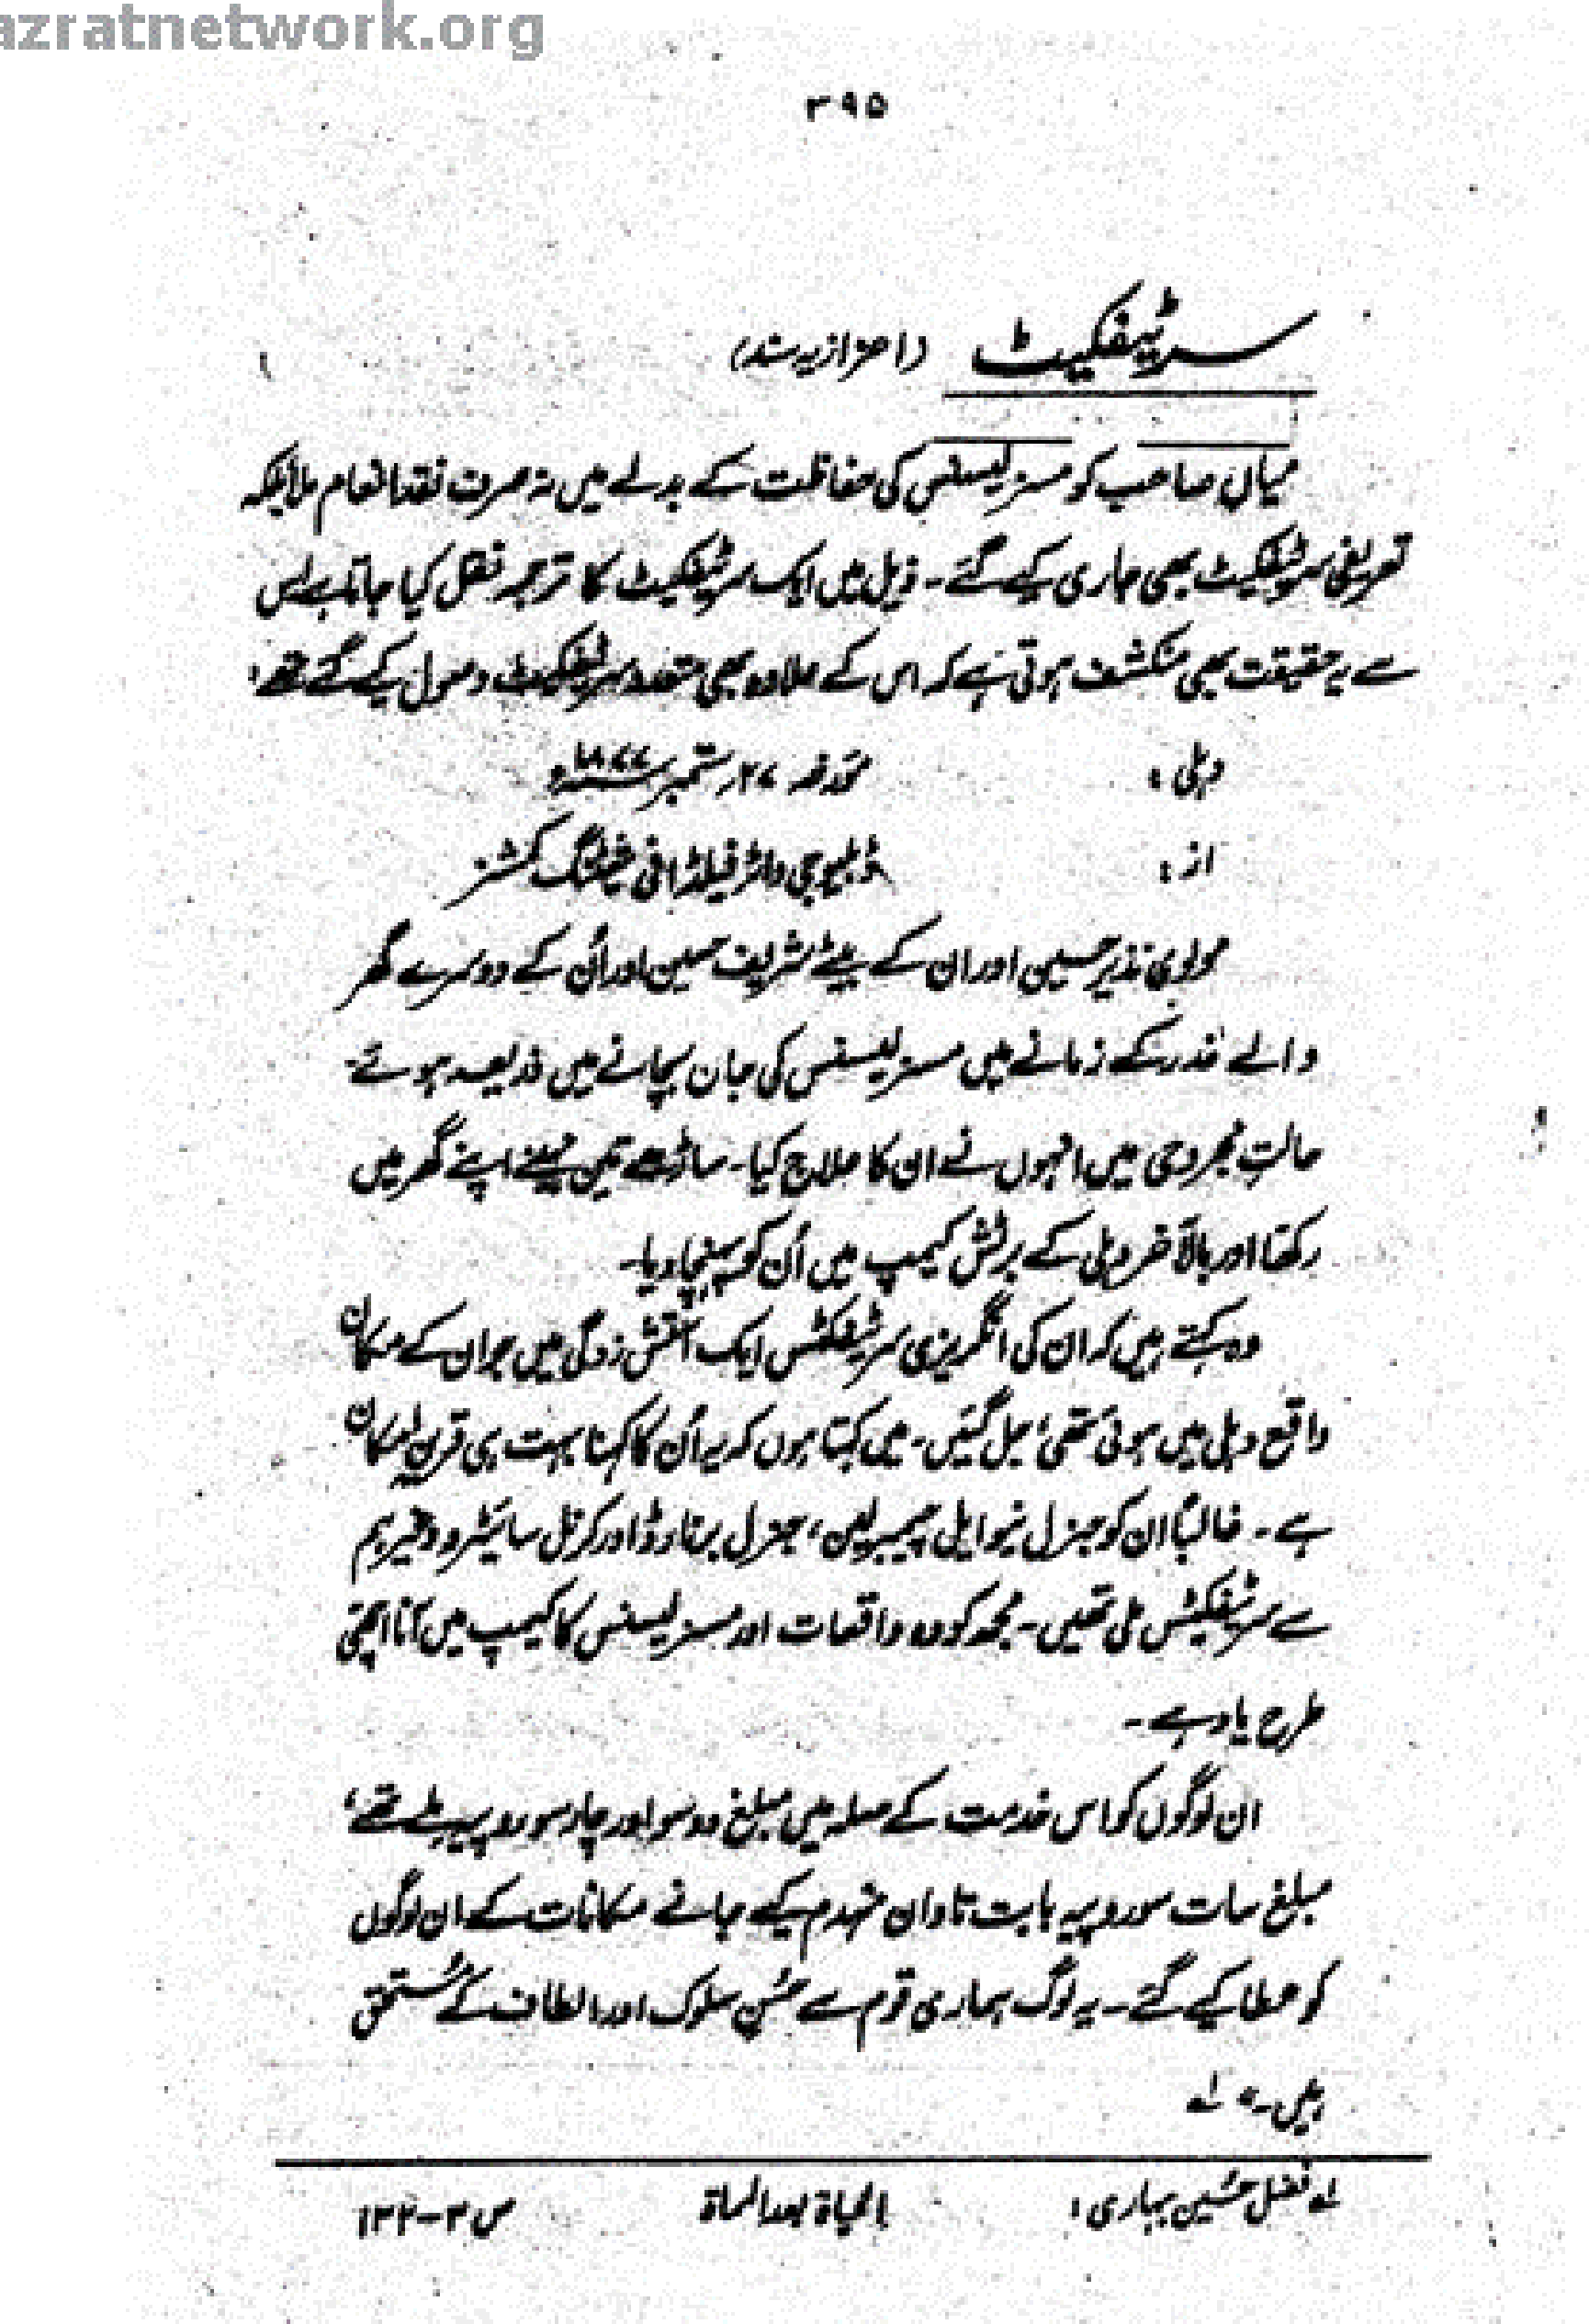 azratnetwork.org
۳۹۵
سرٹیفکیٹ (اعزازیہ سند)
میاں صاحب کو مسز لیسنس کی حفاظت کے بدلے میں نہ صرف نقد انعام ملا بلکہ
تعریفی سرٹیفکیٹ بھی جاری کیے گئے۔ ذیل میں ایک سرٹیفکیٹ کا ترجمہ نقل کیا جاتا ہے اس
سے یہ حقیقت بھی منکشف ہوتی ہے کہ اس کے علاوہ بھی متعدد سرٹیفکیٹ وصول کیے گئے تھے،
دہلی: مورخہ ۲۷ ستمبر ۱۸۷۷ء
از: ڈبلیو جی واٹر فیلڈ آفی شیٹنگ کمشنر
مولوی نذیر حسین اور ان کے بیٹے شریف حسین اور اُن کے دوسرے گھر
والے غدر کے زمانے میں مسز لیسنس کی جان بچانے میں ذریعہ ہوئے۔
حالتِ مجروحی میں انہوں نے ان کا علاج کیا۔ ساڑھے تین مہینے اپنے گھر میں
رکھا اور بالآخر دہلی کے برٹش کیمپ میں اُن کو پہنچا دیا۔
وہ کہتے ہیں کہ ان کی انگریزی سرٹیفکٹس ایک آتش زدگی میں جو ان کے مکان
واقع دہلی میں ہوئی تھی، جل گئیں۔ میں کہتا ہوں کہ یہ اُن کا کہنا بہت ہی قرینِ امکان
ہے۔ غالباً ان کو جنرل نیوایلی چیمبرلین، جنرل برنارڈ اور کرنل سائیٹر وغیرہم
سے سرٹیفکیٹس ملی تھیں۔ مجھ کو وہ واقعات اور مسز لیسنس کا کیمپ میں آنا اچھی
طرح یاد ہے۔
ان لوگوں کو اس خدمت کے صلہ میں مبلغ دو سو اور چار سو روپیہ ملے تھے،
مبلغ سات سو روپیہ بابت تاوان منہدم کیے جانے مکانات کے ان لوگوں
کو عطا کیے گئے۔ یہ لوگ ہماری قوم سے حُسنِ سلوک اور الطاف کے مُستحق
ہیں۔" ؎
؎ فضل حسین بہاری: الحیاة بعد المماة ص ۳-۱۳۲